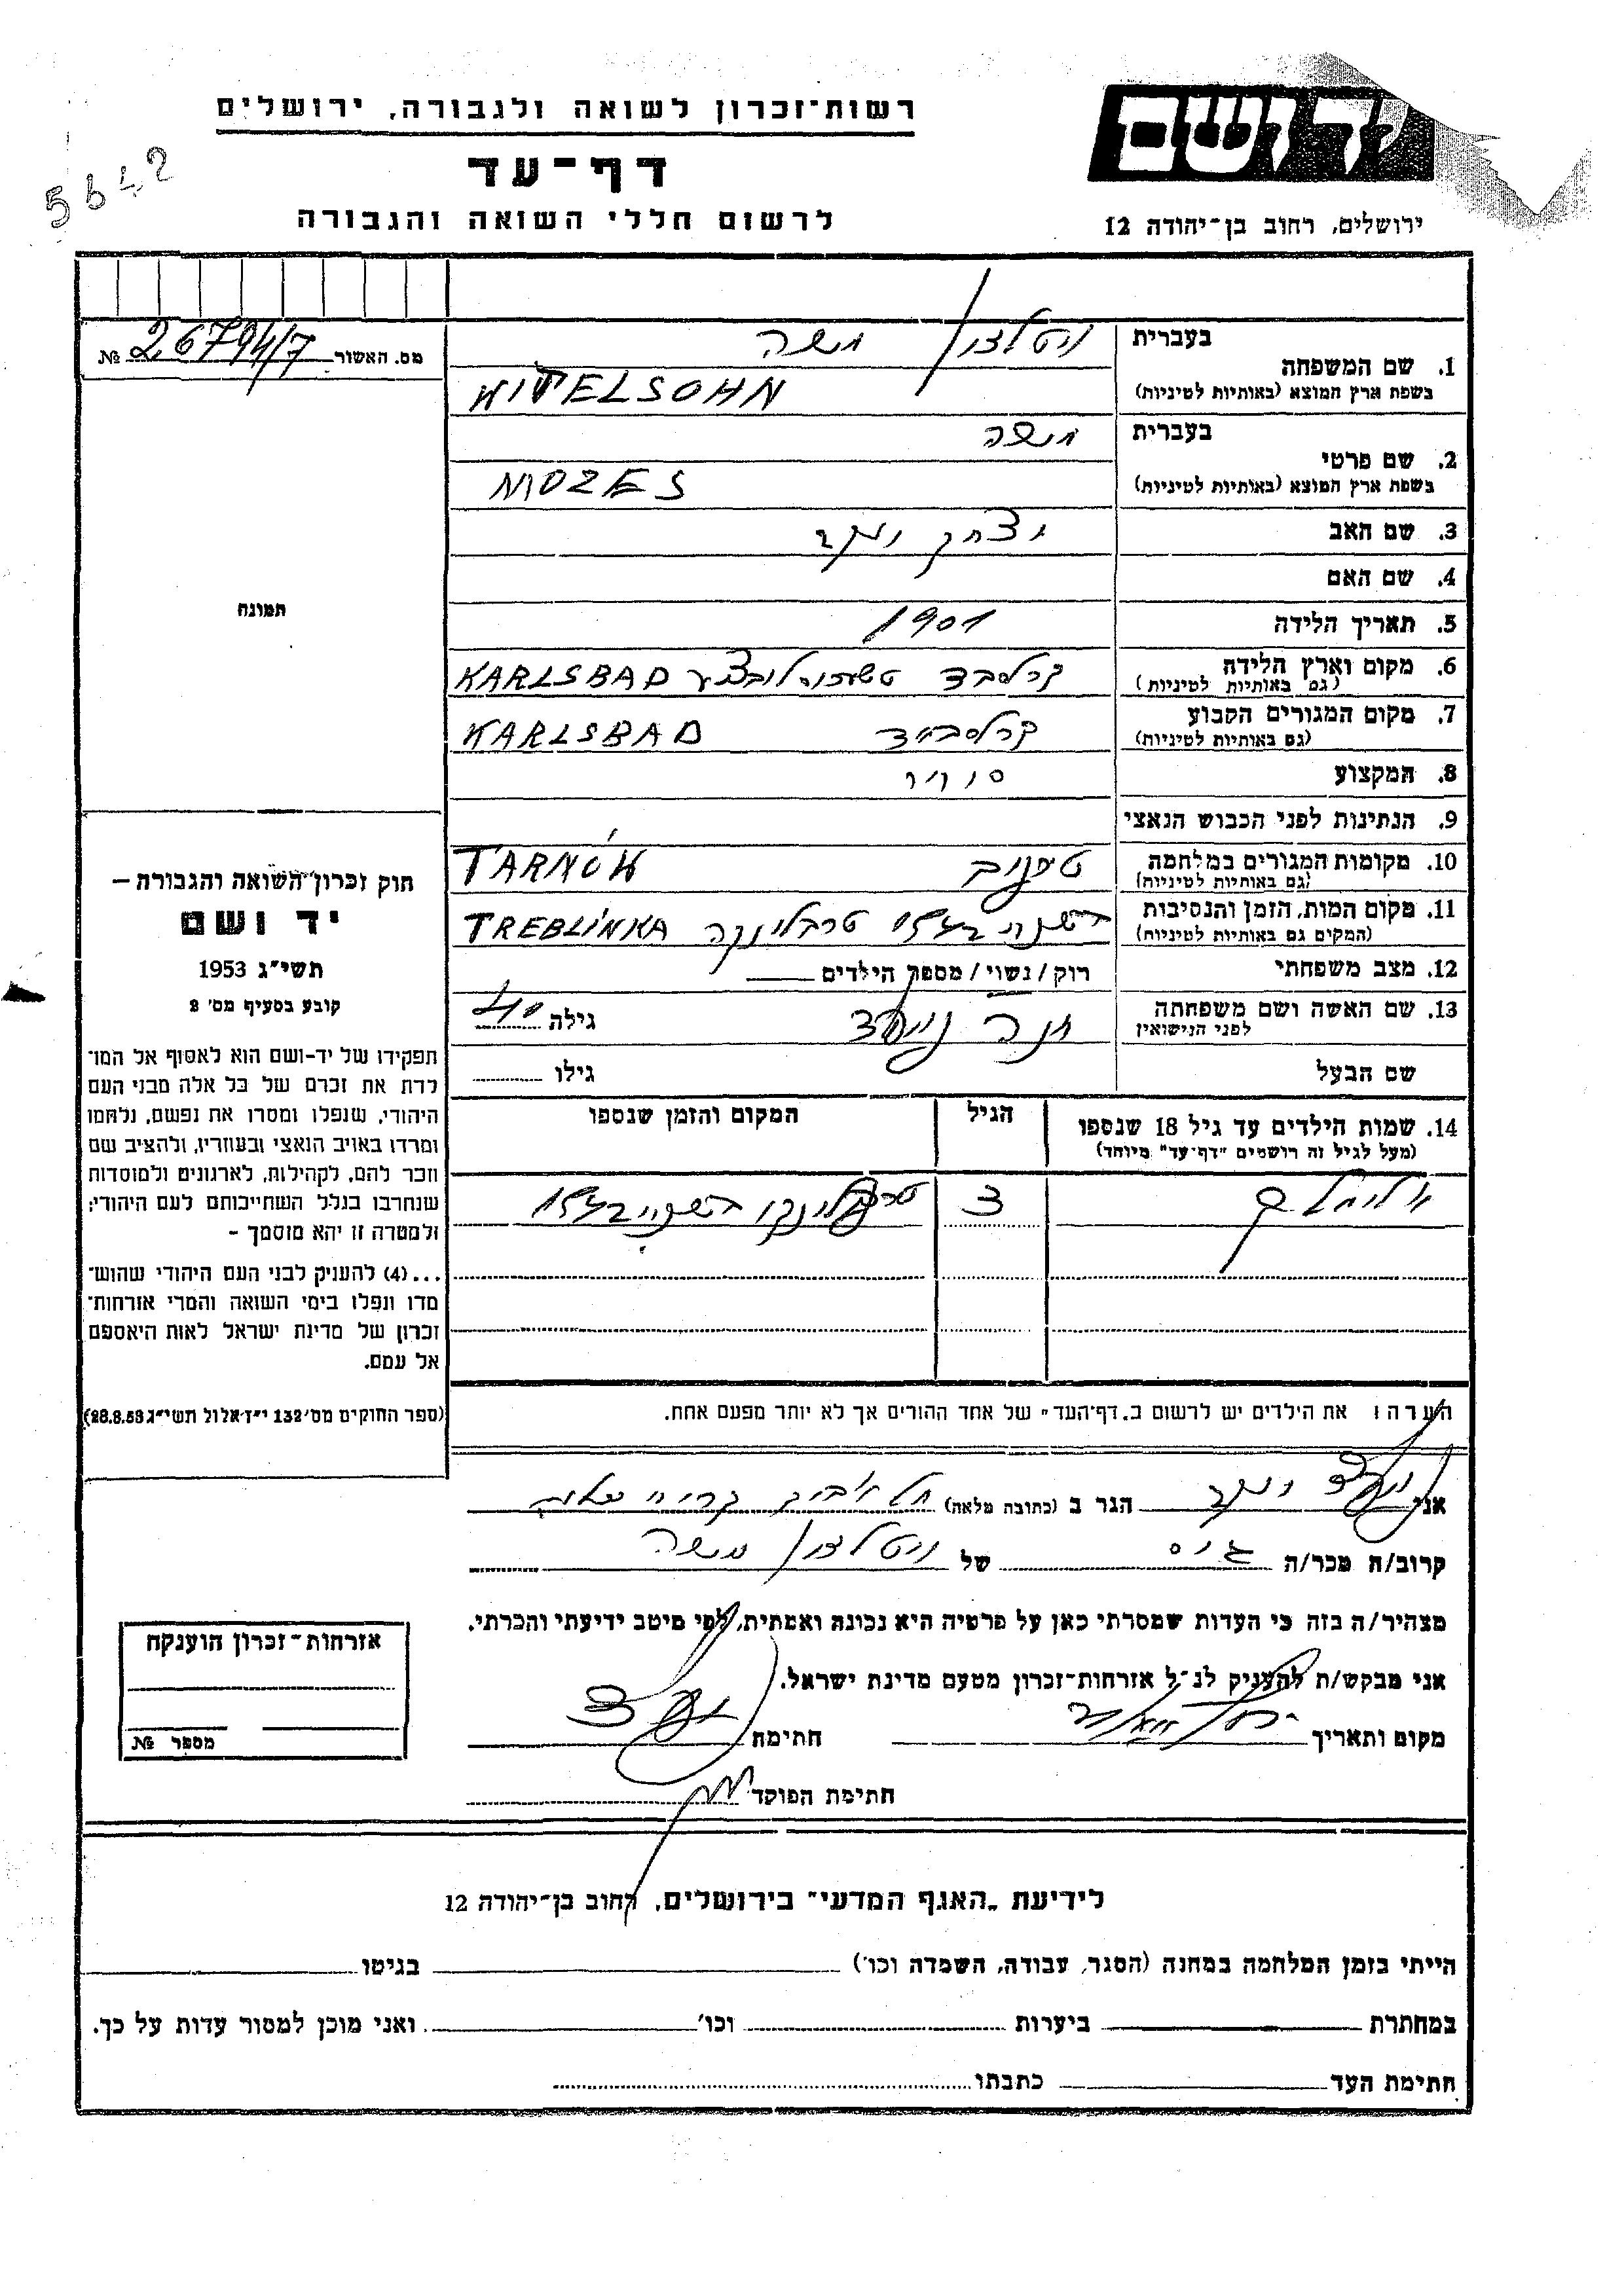 רשות־זכרון לשואה ולגבורה, ירושלים
דף־עד
לרשום חללי השואה והגבורה
יד ושם
ירושלים, רחוב בן־יהודה 12
5642
מס. האשור 26794/7 №
1. שם המשפחה
בעברית ויטלצון משה
בשפת ארץ המוצא (באותיות לטיניות) WITELSOHN
2. שם פרטי
בעברית משה
בשפת ארץ המוצא (באותיות לטיניות) MOZES
3. שם האב יצחק יעקב
4. שם האם
5. תאריך הלידה 1901
6. מקום וארץ הלידה
(גם באותיות לטיניות) קרלסבד KARLSBAD
7. מקום המגורים הקבוע
(גם באותיות לטיניות) KARLSBAD
8. המקצוע סוחר
9. הנתינות לפני הכבוש הנאצי
10. מקומות המגורים במלחמה
(גם באותיות לטיניות) TARNÓW
11. מקום המות, הזמן והנסיבות
(המקום גם באותיות לטיניות) 1942 טרבלינקה TREBLINKA
12. מצב משפחתי רוק/נשוי/מספר הילדים
13. שם האשה ושם משפחתה
לפני הנישואין חנה גילה 40
שם הבעל גילו
14. שמות הילדים עד גיל 18 שנספו
(מעל לגיל זה רושמים "דף־עד" מיוחד)
הגיל
המקום והזמן שנספו
3 טרבלינקה 1942
הערה: את הילדים יש לרשום ב„דף־העד" של אחד ההורים אך לא יותר מפעם אחת.
תמונה
חוק זכרון־השואה והגבורה —
יד ושם
תשי"ג 1953
קובע בסעיף מס' 2
תפקידו של יד-ושם הוא לאסוף אל המו־
לדת את זכרם של כל אלה מבני העם
היהודי, שנפלו ומסרו את נפשם, נלחמו
ומרדו באויב הנאצי ובעוזריו, ולהציב שם
וזכר להם, לקהילות, לארגונים ולמוסדות
שנחרבו בגלל השתייכותם לעם היהודי;
ולמטרה זו יהא מוסמך -
...(4) להעניק לבני העם היהודי שהוש־
מדו ונפלו בימי השואה והמרי אזרחות־
זכרון של מדינת ישראל לאות היאספם
אל עמם.
(ספר החוקים מס' 132 י"ז אלול תשי"ג 28.8.53)
אני יעקב הגר ב (כתובה מלאה) תל אביב קרית שלום
קרוב/ה מכר/ה גיס של ויטלצון משה
מצהיר/ה בזה כי העדות שמסרתי כאן על פרטיה היא נכונה ואמתית, לפי מיטב ידיעתי והכרתי.
אני מבקש/ת להעניק לנ"ל אזרחות־זכרון מטעם מדינת ישראל.
מקום ותאריך חתימת
חתימת הפוקד
אזרחות־זכרון הוענקה
מספר №
לידיעת „האגף המדעי" בירושלים, רחוב בן־יהודה 12
הייתי בזמן המלחמה במחנה (הסגר, עבודה, השמדה וכו') בגיטו
במחתרת ביערות וכו' ואני מוכן למסור עדות על כך.
חתימת העד כתבתו